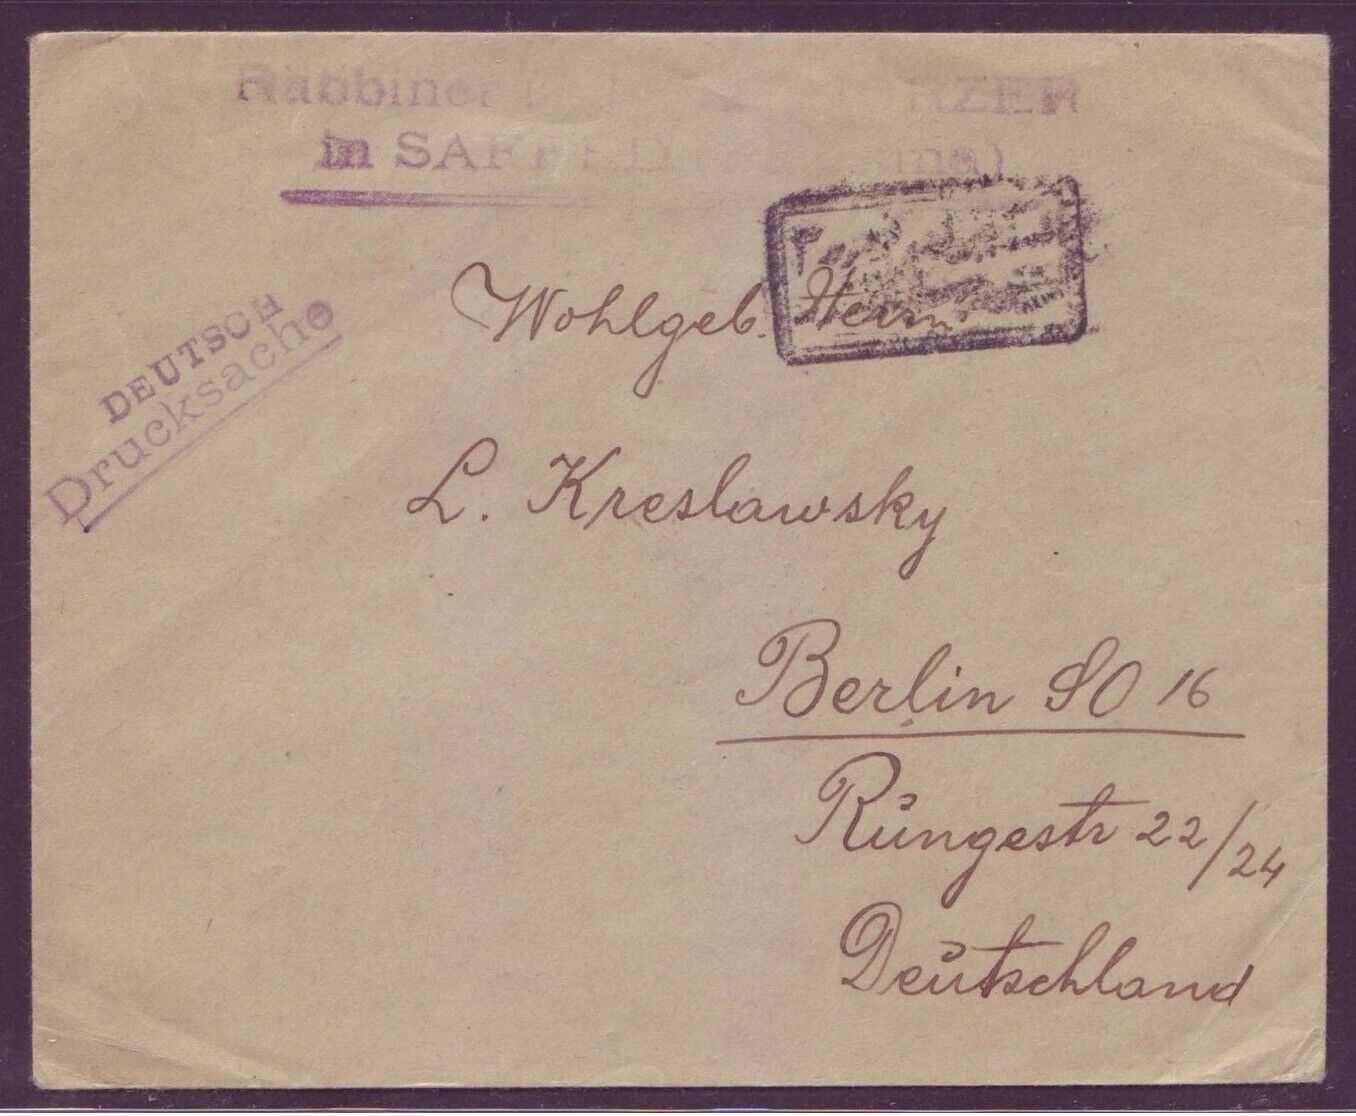 in SAFED
DEUTSCH
Drucksache
Wohlgeb. Herrn
L. Kreslawsky
Berlin SO 16
Rüngestr 22/24
Deutschland